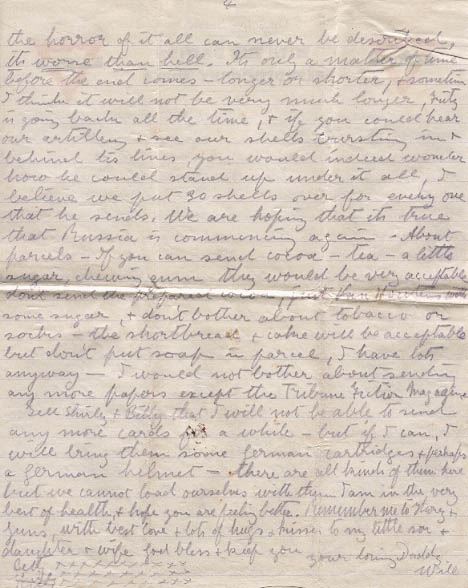 4
the horror of it all can never be described,
its worse than hell. Its only a matter of time
before the end comes – longer or shorter, & sometimes
I think it will not be very much longer, Fritz
is going back all the time, & if you could hear
our artillery & see our shells bursting in &
behind his lines you would indeed wonder
how he could stand up under it all, I
believe we put 30 shells over for every one
that he sends. We are hoping that its true
that Russia is commencing again – About
parcels – If you can send cocoa – tea – a little
sugar, chewing gum they would be very acceptable
dont send the prepared cocoa, just with
some sugar, & dont bother about tobacco or
socks – the shortbread & cake will be acceptable
but dont put soap in parcel, I have lots
anyway – I would not bother about sending
any more papers except the Tribune Fiction Magazine
Tell Shirly & Betty that I will not be able to send
any more cards for a while – but if I can, I
will bring them some German cartridges & perhaps
a German helmet – there are all kinds of them here
but we cannot load ourselves with them. I am in the very
best of health & hope you are feeling better. Remember me to &
with best love & lots of hugs & kisses to my little son &
daughter & wife God bless & keep you your loving Daddy
Betty x x x x x x x x Will
x x x x x x x x